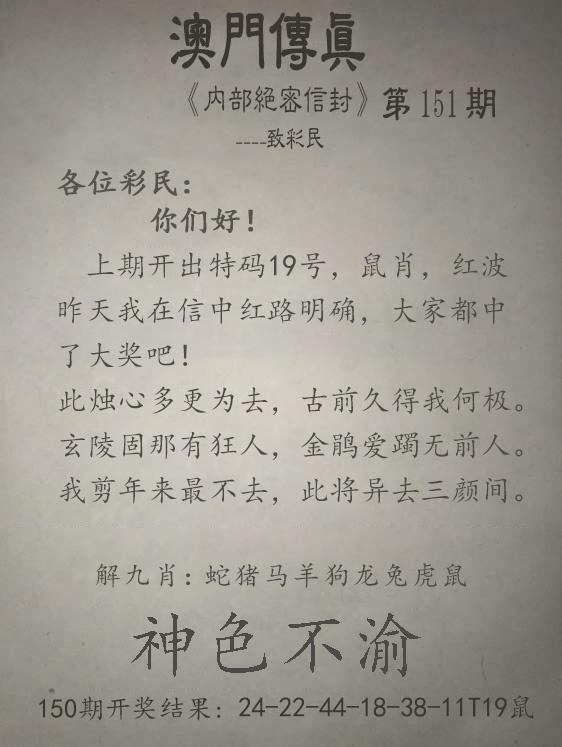 澳門傳真
《内部絕密信封》第151期
----致彩民
各位彩民：
你们好！
上期开出特码19号，鼠肖，红波
昨天我在信中红路明确，大家都中
了大奖吧！
此烛心多更为去，古前久得我何极。
玄陵固那有狂人，金鹃爱躅无前人。
我剪年来最不去，此将异去三颜间。
解九肖：蛇猪马羊狗龙兔虎鼠
神色不渝
150期开奖结果：24-22-44-18-38-11T19鼠